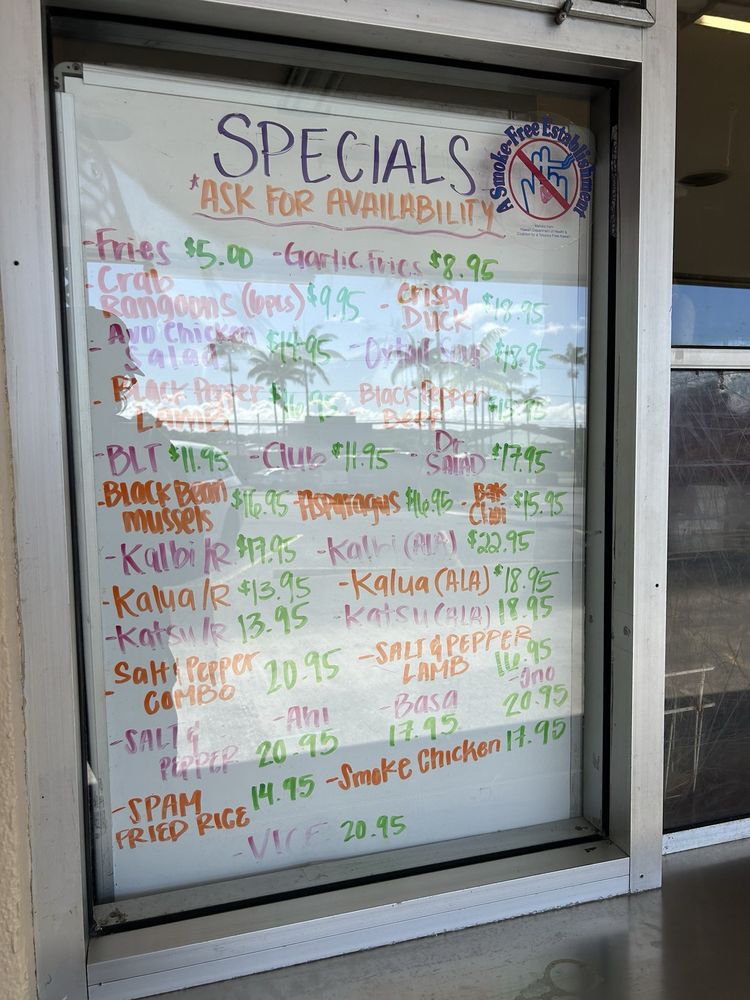 SPECIALS
*ASK FOR AVAILABILITY
A Smoke-Free Establishment
-Fries $5.00 -Garlic Fries $8.95
-Crab Rangoons (6pcs) $9.95 -Crispy Duck $18.95
-Avo Chicken Salad $14.95 -Oxtail Soup $18.95
-Black Pepper Lamb Black Pepper Beef
-BLT $11.95 -Club $11.95 -Dr Salad $17.95
-Black Bean Mussels $16.95 -Asparagus $16.95 -Bok Choi $15.95
-Kalbi/R $17.95 -Kalbi (ALA) $22.95
-Kalua/R $13.95 -Kalua (ALA) $18.95
-Katsu/R 13.95 -Katsu (ALA) 18.95
-Salt & Pepper COMBO 20.95 -SALT & PEPPER LAMB 16.95
-SALT & PEPPER -Ahi 20.95 -Basa 17.95 -Ono 20.95
-SPAM FRIED RICE 14.95 -Smoke Chicken 17.95
20.95